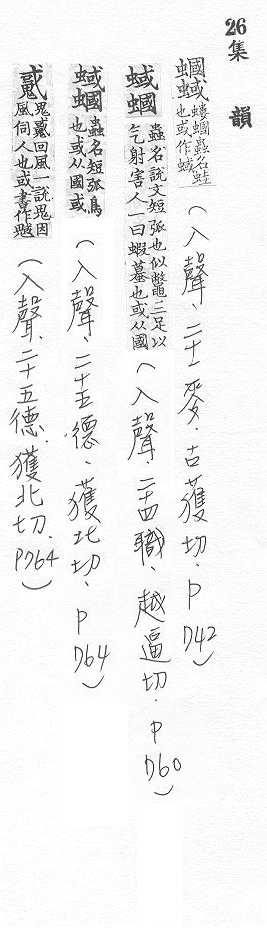 26
集
韻
蟈蜮 螻蟈蟲名蛙也或作蜮 (入聲、二十一麥、古獲切、P742)
蜮蟈 蟲名說文短弧也似鼈三足以气射害人一曰蝦蟇也或从國 (入聲、二十四職、越逼切、P760)
蜮蟈 蟲名短弧鳥也或从國或 (入聲、二十五德、獲北切、P764)
鬼𢠵回風一說鬼因風伺人也或書作 (入聲、二十五德、獲北切、P764)